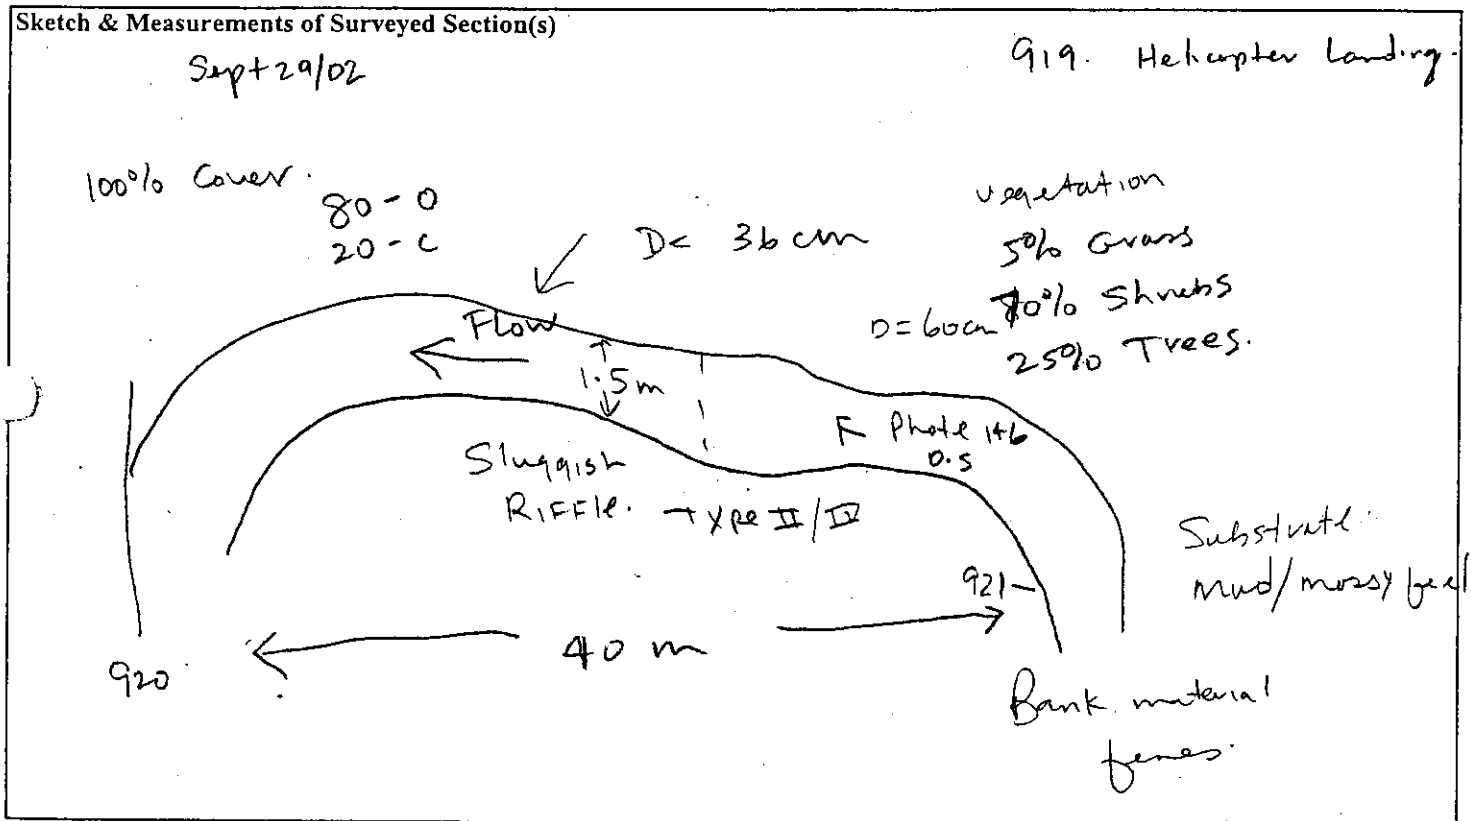 Sketch & Measurements of Surveyed Section(s)
Sept 29/02
919. Helicopter Landing.
100% Cover.
80-0
20-C
D< 36 cm
vegetation
5% Grass
70% Shrubs
25% Trees.
D=60cm
Flow
1.5m
F Photo 1+6
0.5
Sluggish
RIFFle. Type II/IV
Substrate:
mud/mossy
921
40 m
920
Bank material